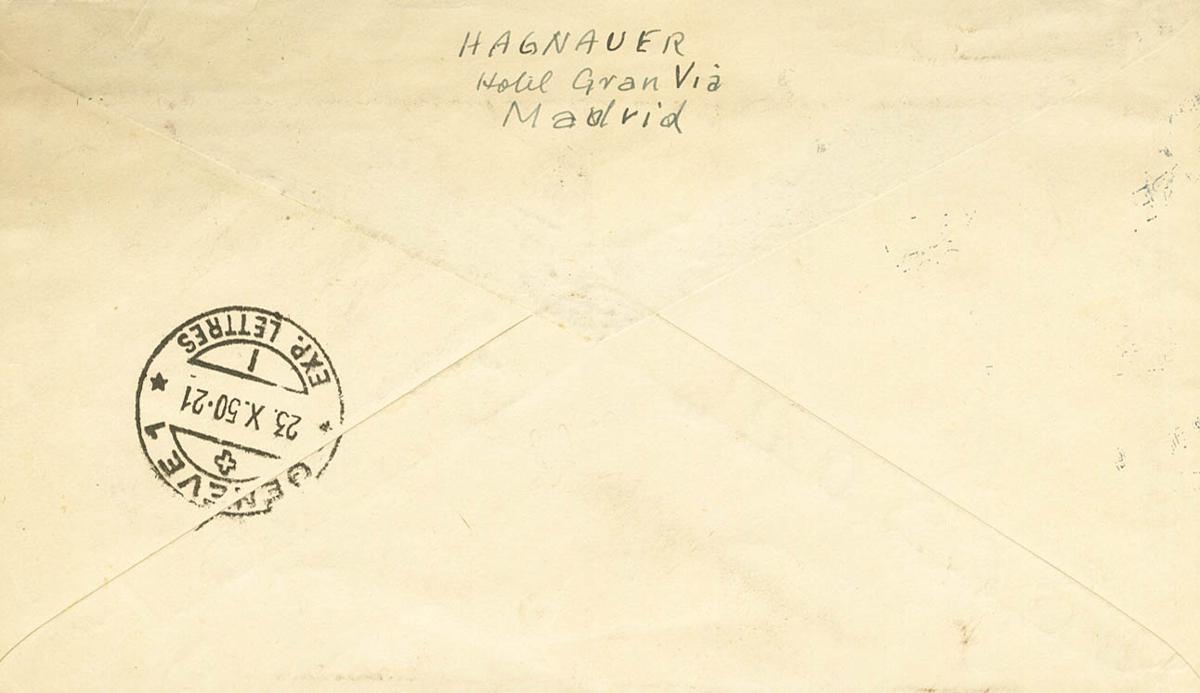 HAGNAUER
Hotel Gran Via
Madrid
GENÈVE 1
23.X.50-21
1
EXP. LETTRES